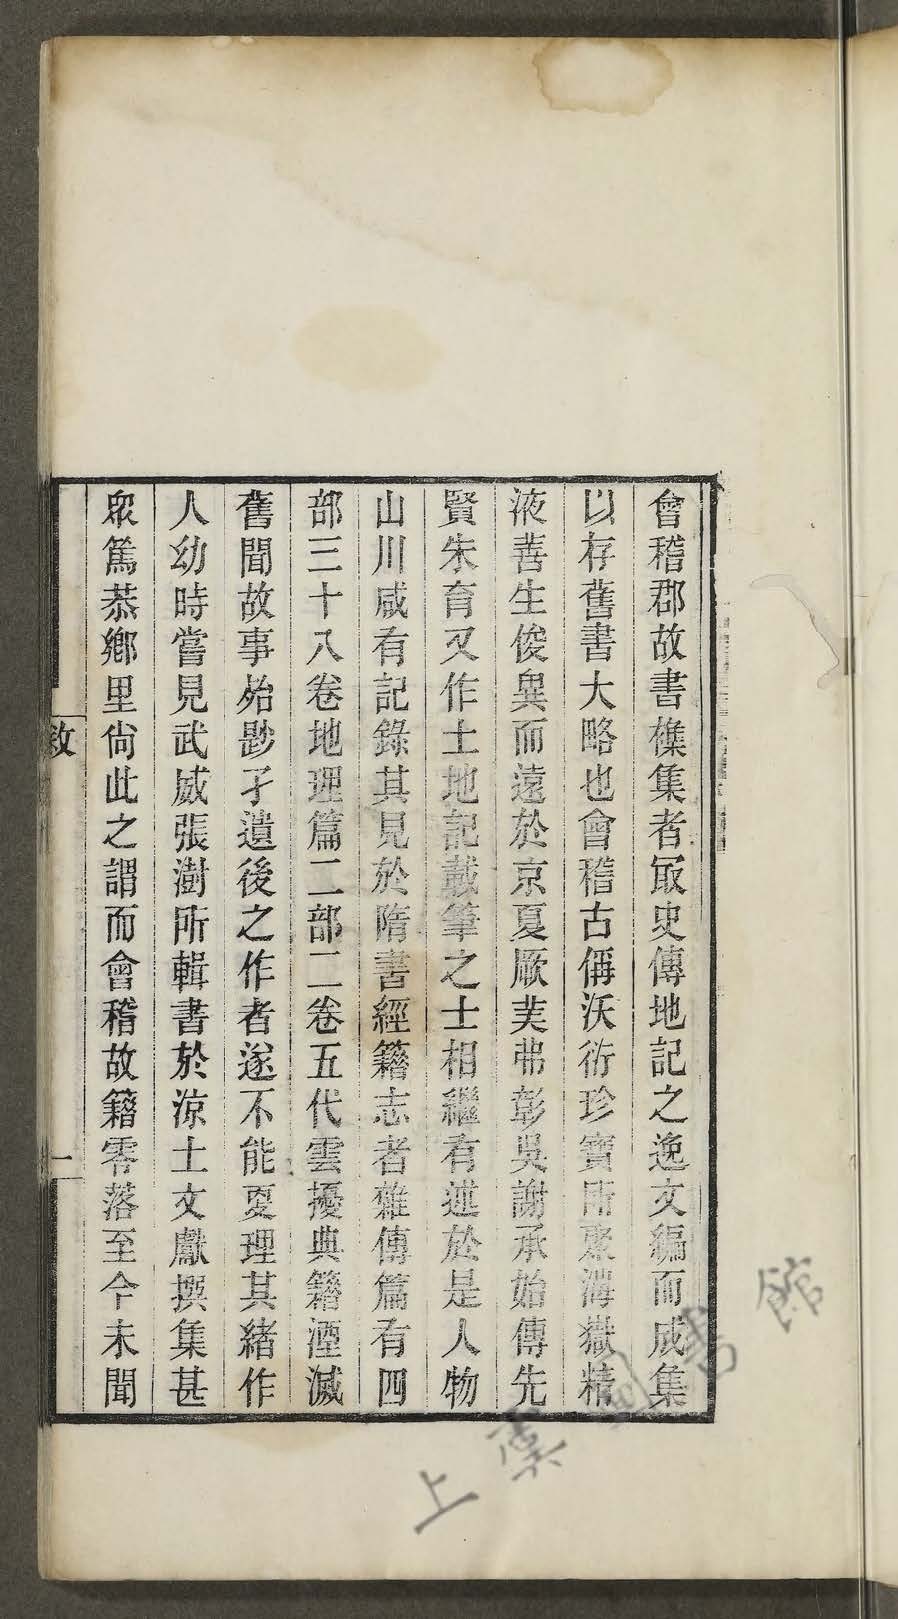 會稽郡故書襍集者冣史傳地記之逸文編而成集
以存舊書大略也會稽古偁沃衍珍寶所聚海嶽精
液善生俊異而遠於京夏厥美弗彰吳謝承始傳先
賢朱育又作土地記載筆之士相繼有述於是人物
山川咸有記錄其見於隋書經籍志者雜傳篇有四
部三十八卷地理篇二部二卷五代雲擾典籍湮滅
舊聞故事殆尟孑遺後之作者遂不能更理其緒作
人幼時嘗見武威張澍所輯書於涼土文獻撰集甚
眾篤恭鄉里尚此之謂而會稽故籍零落至今未聞
敘
一
上虞圖書館